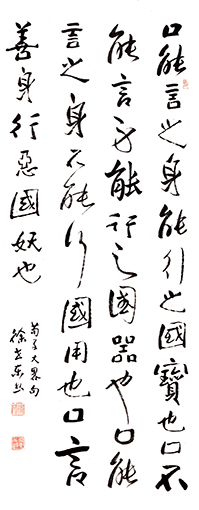 口能言之身能行之國寶也口不
能言身能行之國器也口能
言之身不能行國用也口言
善身行惡國妖也
荀子大略句
徐